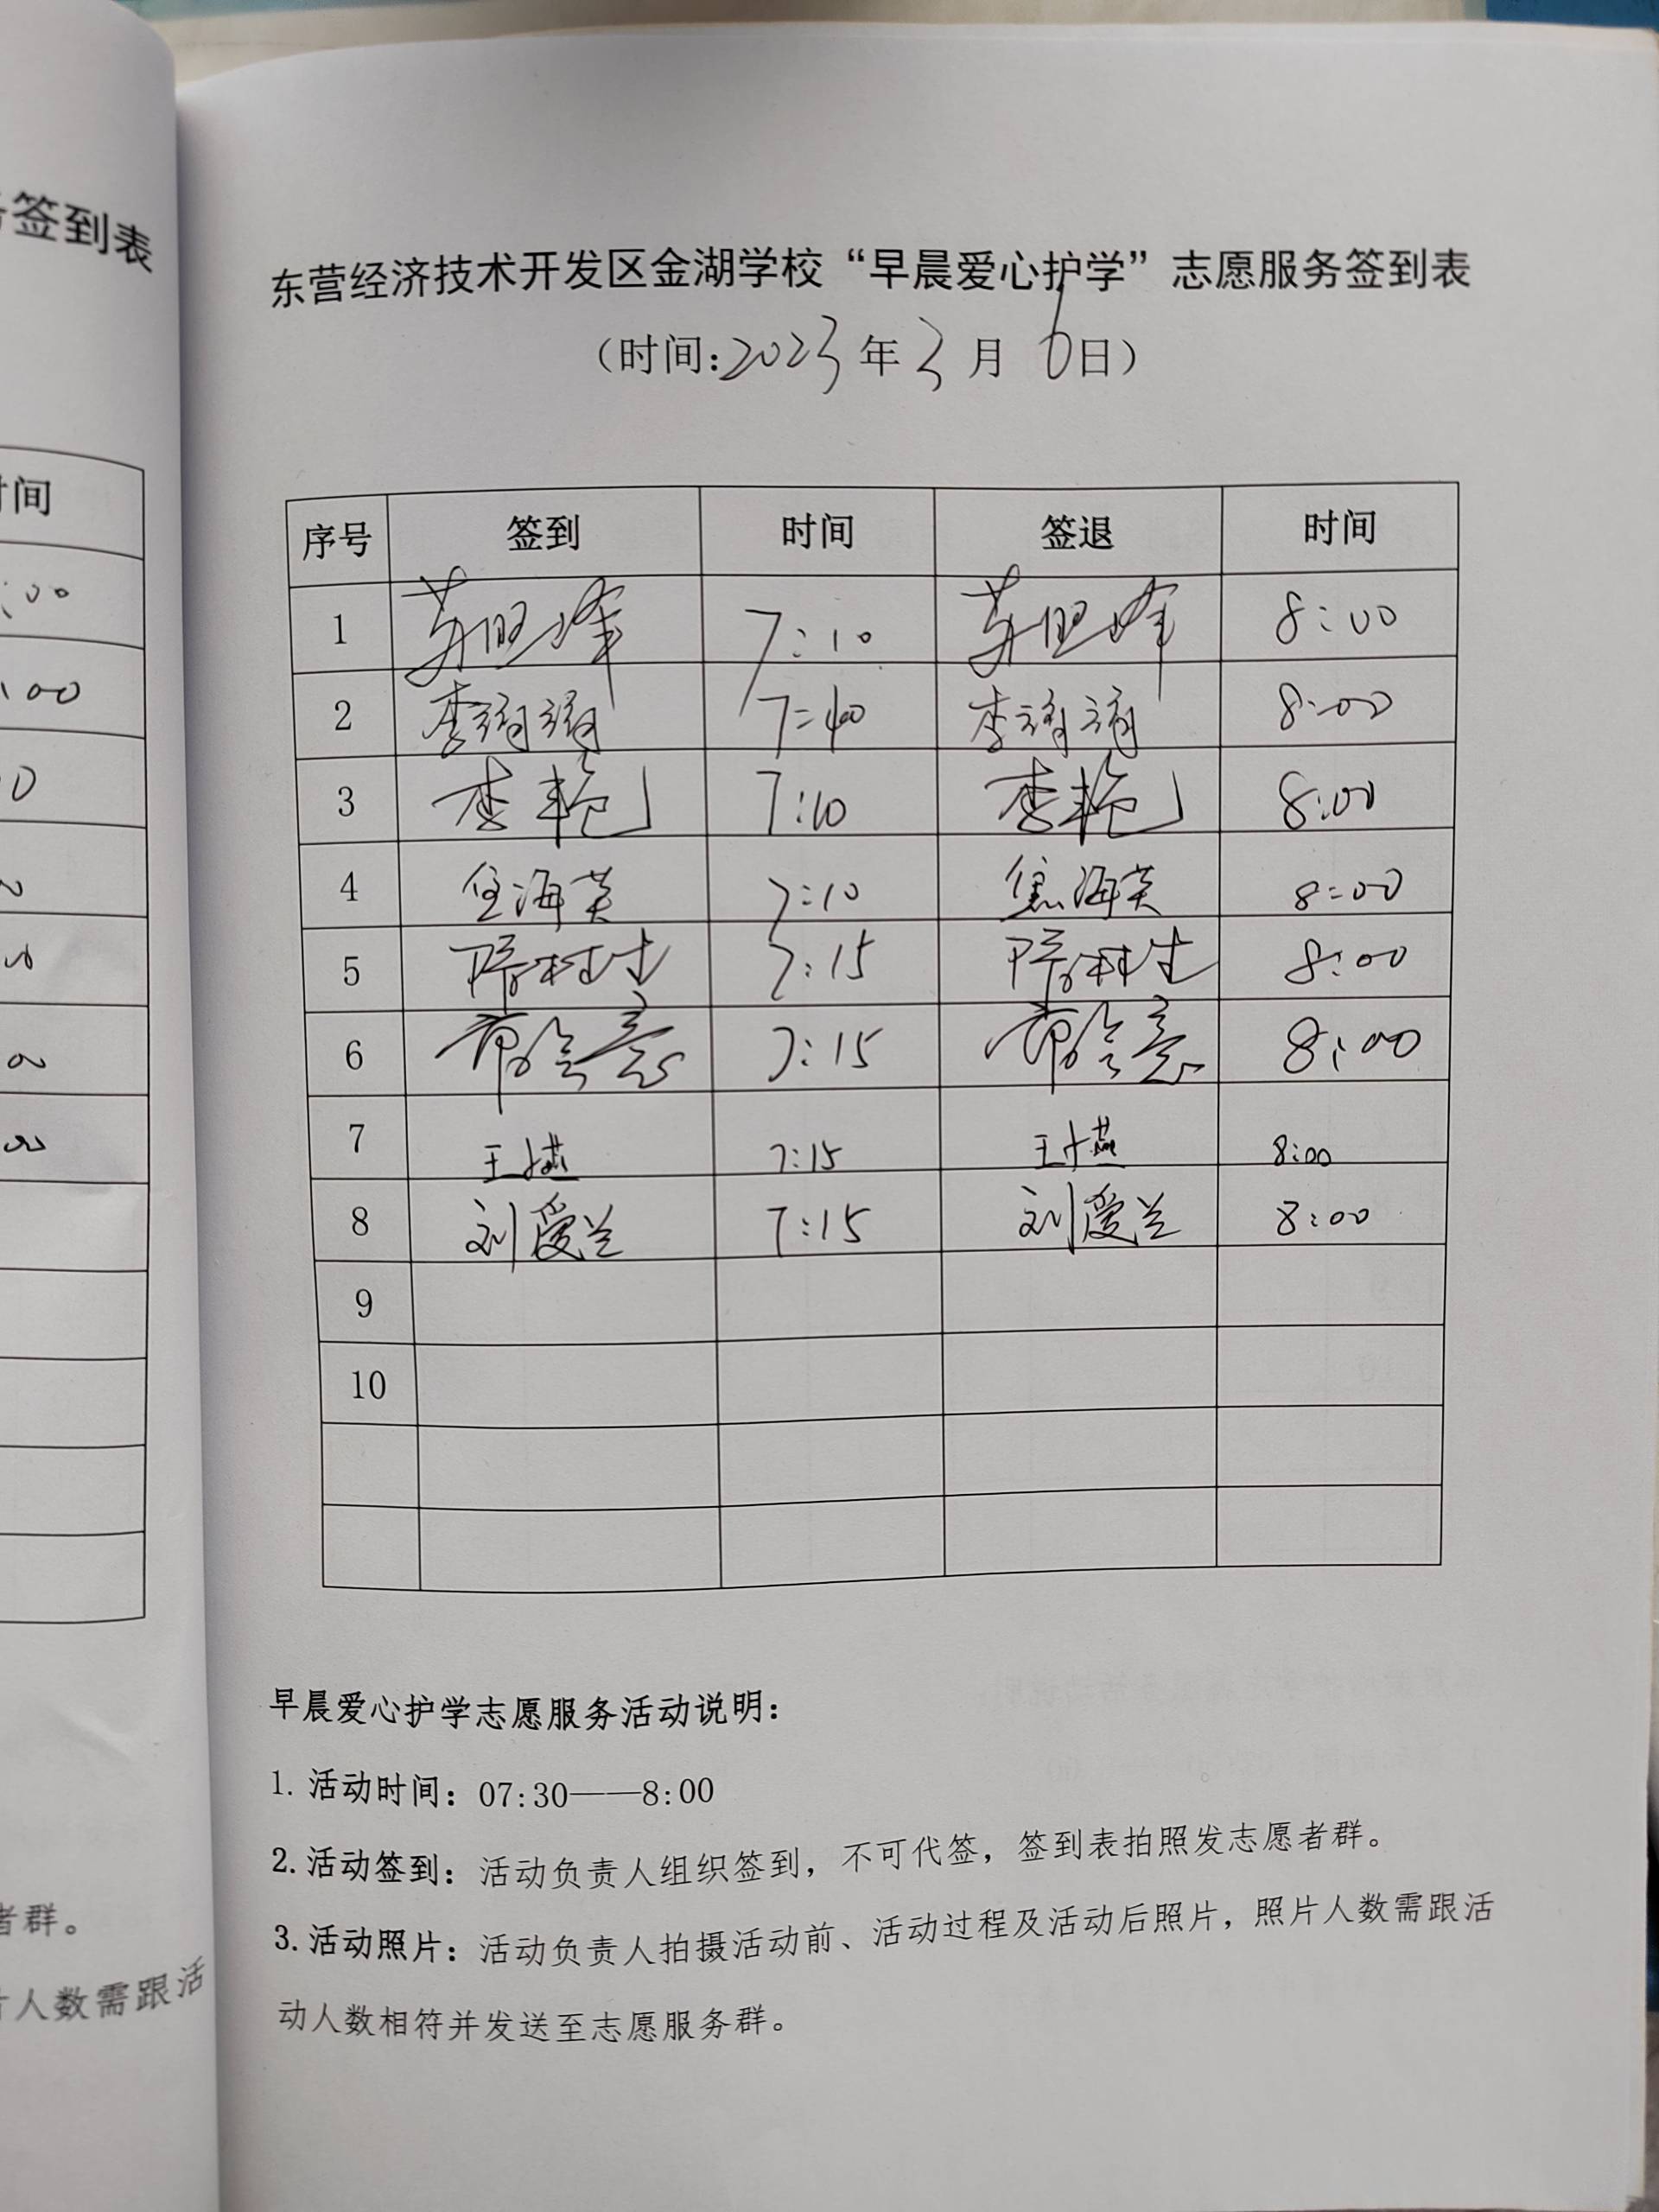 签到表
时间
:00
:00
者群。
人数需跟活
东营经济技术开发区金湖学校“早晨爱心护学”志愿服务签到表
（时间:2023年3月6日）
序号 签到 时间 签退 时间
1 苏 峰 7:10 苏 峰 8:00
2 李 7:40 李 8:00
3 李艳 7:10 李艳 8:00
4 焦海英 7:10 焦海英 8:00
5 7:15 8:00
6 7:15 8:00
7 王燕 7:15 王燕 8:00
8 刘爱兰 7:15 刘爱兰 8:00
9
10
早晨爱心护学志愿服务活动说明：
1. 活动时间：07:30——8:00
2. 活动签到：活动负责人组织签到，不可代签，签到表拍照发志愿者群。
3. 活动照片：活动负责人拍摄活动前、活动过程及活动后照片，照片人数需跟活
动人数相符并发送至志愿服务群。